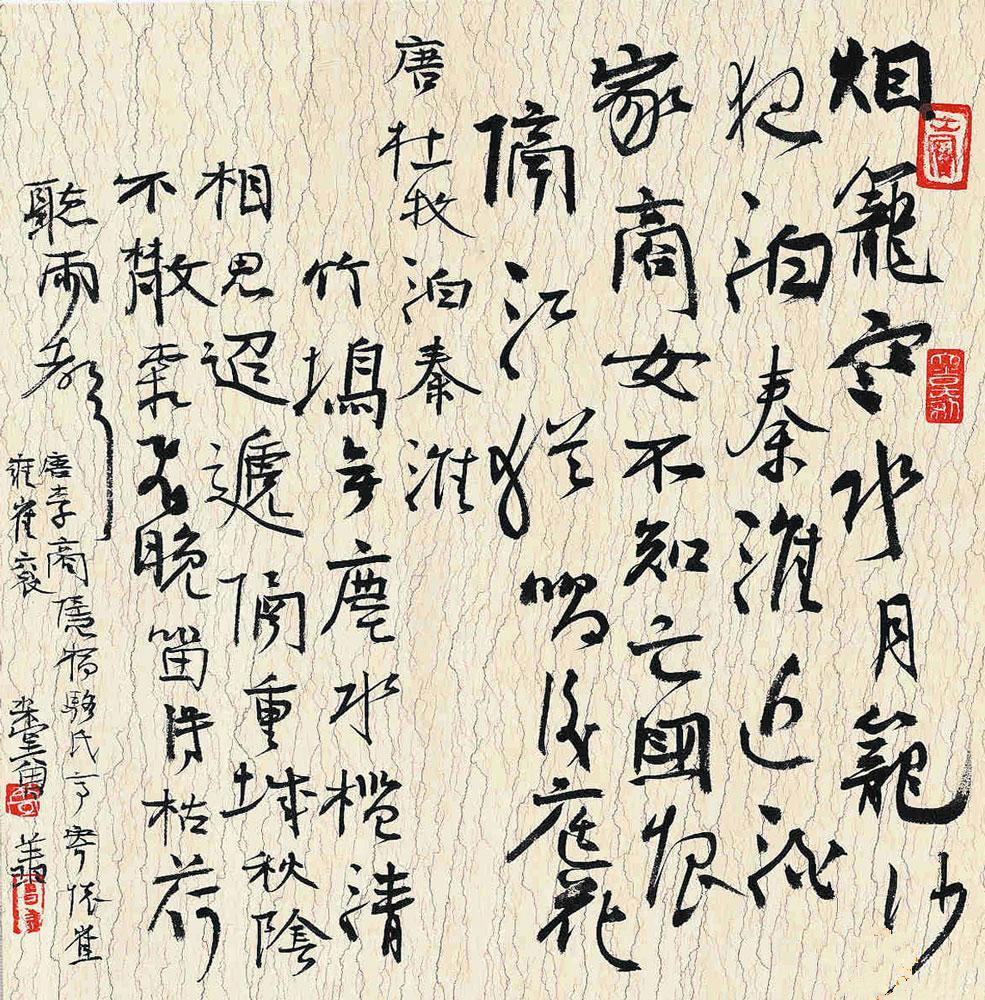 烟籠寒水月籠沙
夜泊秦淮近酒
家商女不知亡國恨
隔江猶唱後庭花
唐杜牧泊秦淮
竹塢無塵水檻清
相思迢遞隔重城秋陰
不散霜飛晚留得枯荷
聽雨聲
唐李商隱宿駱氏亭寄懷崔
雍崔衮